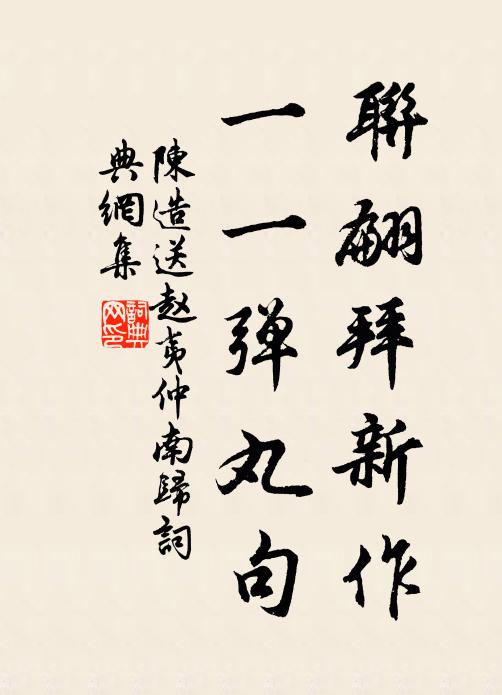 聯翩拜新作
一一弹丸句
陳造送赵夷仲南歸詞
典網集
詞典网印